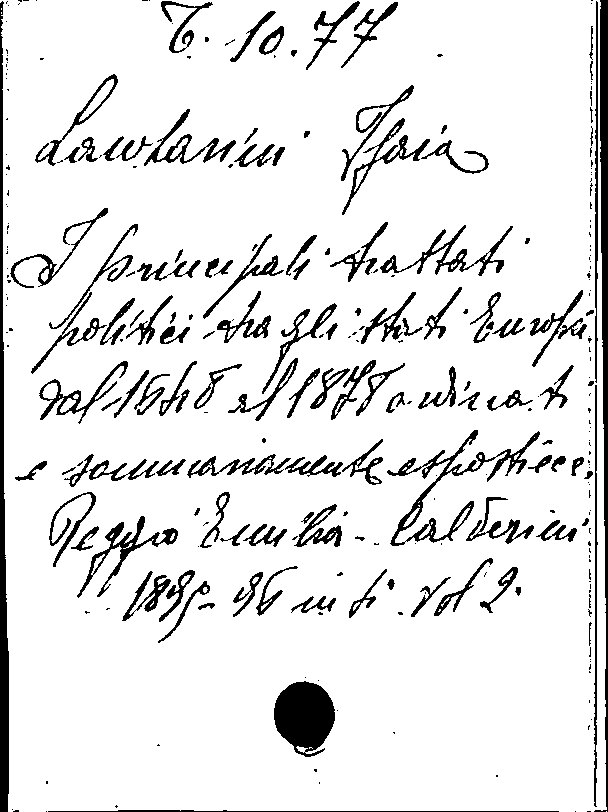 T. 10.77
Isaia
I principali trattati
politici tra gli stati Europei
dal 1648 al 1878 ordinati
e sommariamente esposti ecc.
Reggio Emilia - Calderini
1895-96 in vol 2.